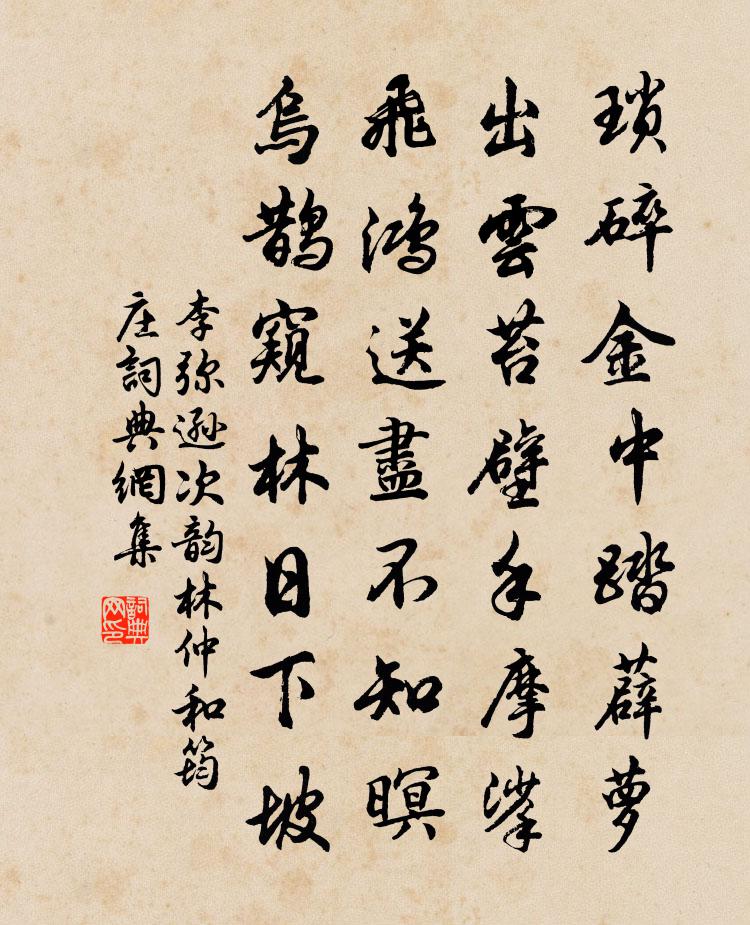 瑣碎金中踏薜萝
出雲苔壁手摩挲
飛鴻送盡不知暝
烏鵲窺林日下坡
李弥遜次韵林仲和筠
庄詞典網集
詞典
网印